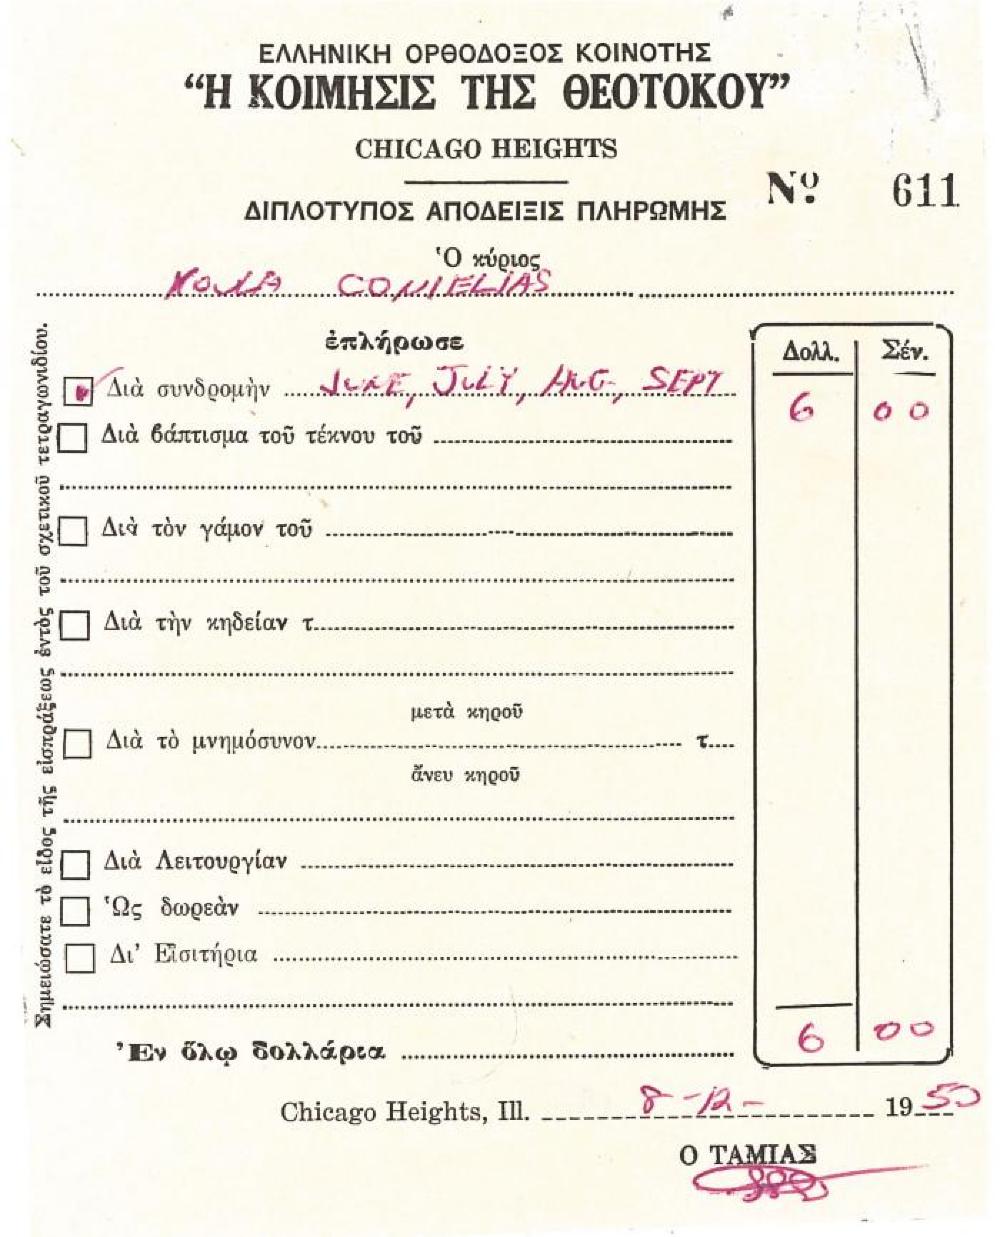 ΕΛΛΗΝΙΚΗ ΟΡΘΟΔΟΞΟΣ ΚΟΙΝΟΤΗΣ
“Η ΚΟΙΜΗΣΙΣ ΤΗΣ ΘΕΟΤΟΚΟΥ”
CHICAGO HEIGHTS
Nº 611
ΔΙΠΛΟΤΥΠΟΣ ΑΠΟΔΕΙΞΙΣ ΠΛΗΡΩΜΗΣ
Ὁ κύριος
ἐπλήρωσε
Δολλ. Σέν.
Διὰ συνδρομὴν JUNE, JULY, AUG, SEPT 6 00
Διὰ βάπτισμα τοῦ τέκνου τοῦ
Διὰ τὸν γάμον τοῦ
Διὰ τὴν κηδείαν τ
μετὰ κηροῦ
Διὰ τὸ μνημόσυνον τ
ἄνευ κηροῦ
Διὰ Λειτουργίαν
Ὡς δωρεὰν
Δι’ Εἰσιτήρια
Ἐν ὅλῳ δολλάρια 6 00
Chicago Heights, Ill. 8-12- 1950
Ο ΤΑΜΙΑΣ
Σημειώσατε τὸ εἶδος τῆς εἰσπράξεως ἐντὸς τοῦ σχετικοῦ τετραγωνιδίου.